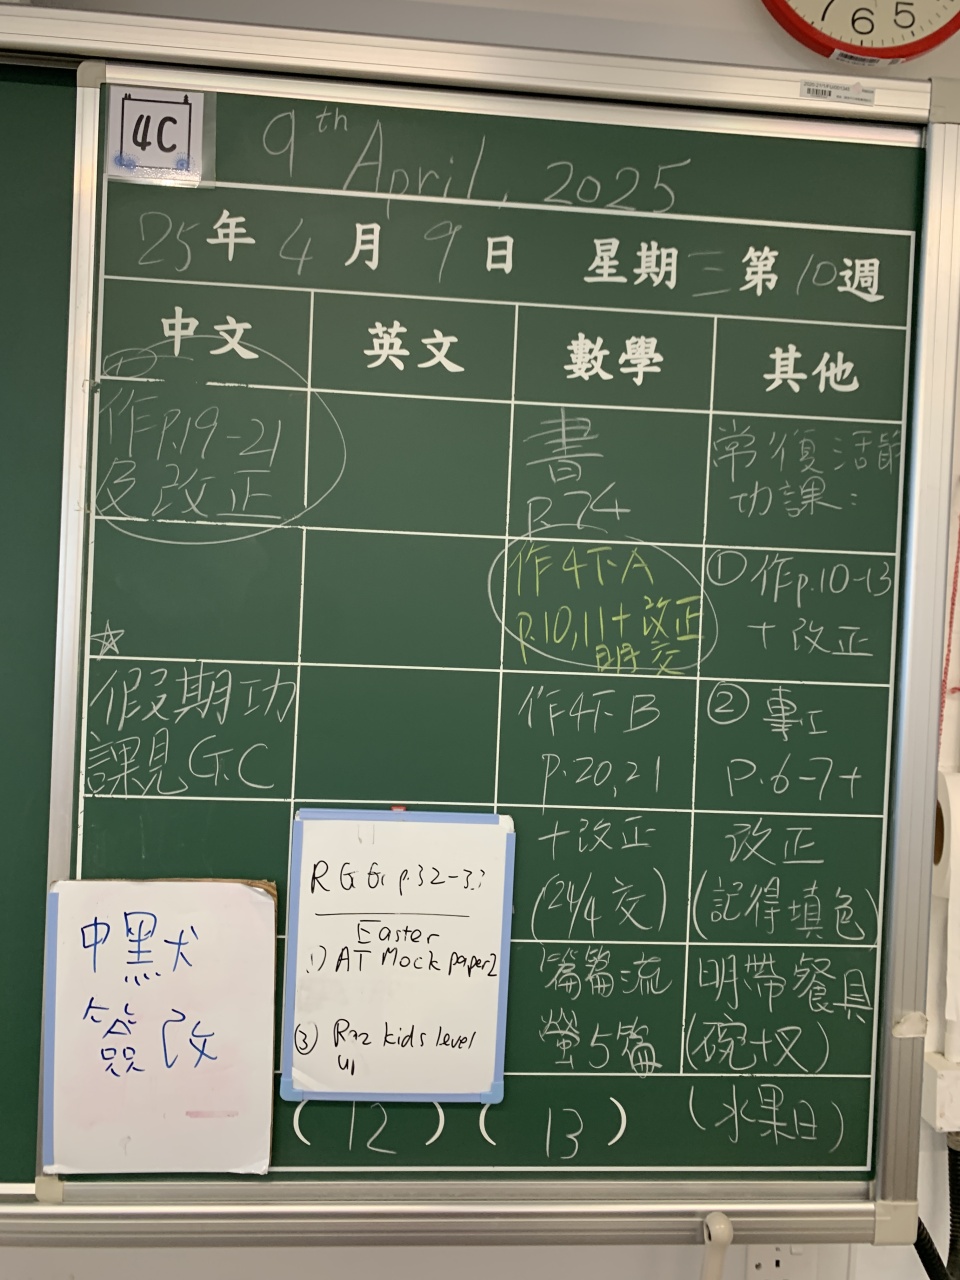 7 6 5
4C
9th April, 2025
25年4月9日 星期三 第10週
中文 英文 數學 其他
作P.19-21
及改正
書
P.74
常復活節
功課：
作4下A
p.10,11+改正
明交
①作p.10-13
+改正
☆
假期功
課見G.C
作4下B
P.20,21
+改正
(24/4交)
②專工
P.6-7+
改正
(記得填色)
篇篇流
螢5篇
明帶餐具
(碗+叉)
(水果日)
中默
簽改
p.32-3
Easter
1) AT Mock paper2
③ Raz kids level
up
(12) (13)